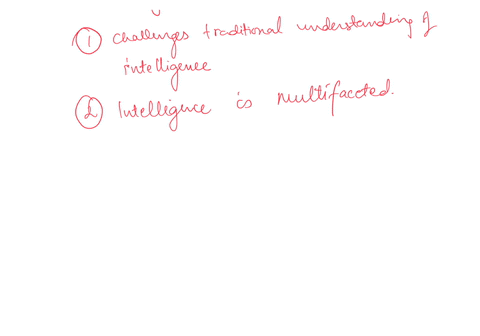 ① challenges traditional understanding of
intelligence
② Intelligence is multifaceted.